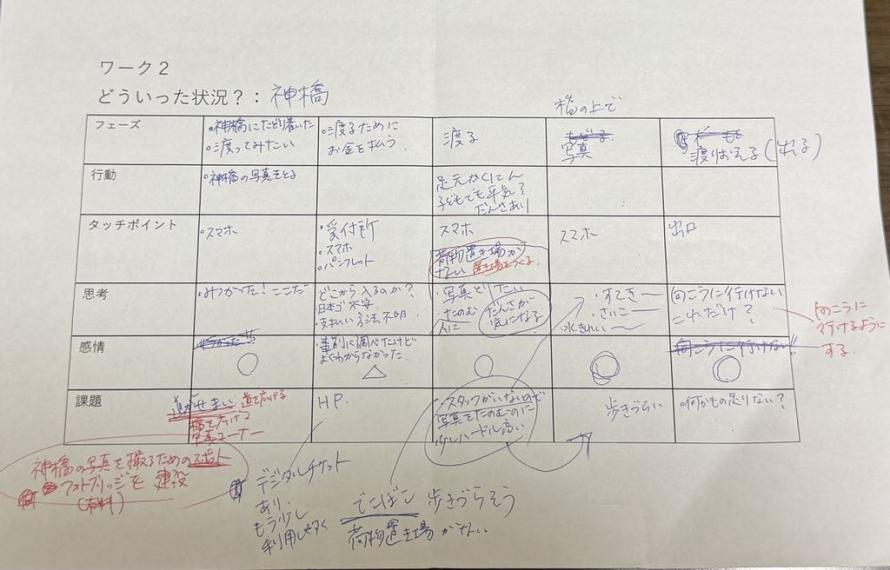 ワーク2
どういった状況?: 神橋
橋の上で
フェーズ
•神橋にたどり着いた
•渡ってみたい
•渡るために
お金を払う
渡る
写真
渡りおえる(出る)
行動
•神橋の写真をとる
足元かくにん
子どもでも平気?
だんさあり
タッチポイント
•スマホ
•受付所
•スマホ
•パンフレット
スマホ
荷物置き場が
ない 置き場をつくる
スマホ
出口
思考
•みつかった!ここだ
どこから入るのか?
日本ゴ不安
•支払い方法不明
•写真とりたい
•たのむ
人に
だんさが
気になる
•すてきー
•さいこー
•水きれいー
向こうに行けない
これだけ?
向こうに
行けるように
する
感情
○
•事前に調べたけど
よくわからなかった
△
○
○
向こうに行けない!!
○
課題
道がせまい 道を広げる
橋を
コーナー
HP.
•スタッフがいないので
写真をたのむのに
少しハードル高い
歩きづらい
•何かもの足りない?
神橋の写真を撮るためのスポット
フォトブリッジを建設
(有料)
デジタルチケット
あり.
もう少し
利用しやすく
でこぼこ 歩きづらそう
荷物置き場がない